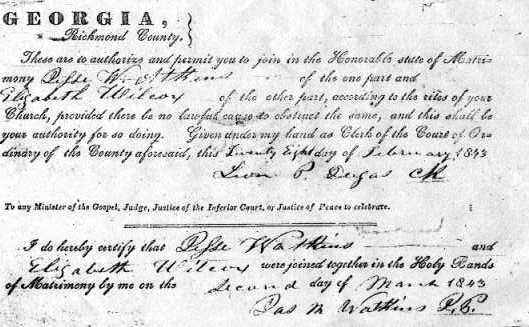 GEORGIA,
Richmond County.
These are to authorize and permit you to join in the Honorable state of Matri-
mony Jesse Watkins of the one part and
Elizabeth Wilcox of the other part, according to the rites of your
Church, provided there be no lawful cause to obstruct the same, and this shall be
your authority for so doing. Given under my hand as Clerk of the Court of Or-
dinary of the County aforesaid, this Twenty Eight day of February 1843
Leon P. Dugas Clk
To any Minister of the Gospel, Judge, Justice of the Inferior Court, or Justice of Peace to celebrate.
I do hereby certify that Jesse Watkins and
Elizabeth Wilcox were joined together in the Holy Bands
of Matrimony by me on this Second day of March 1843
Jas M Watkins